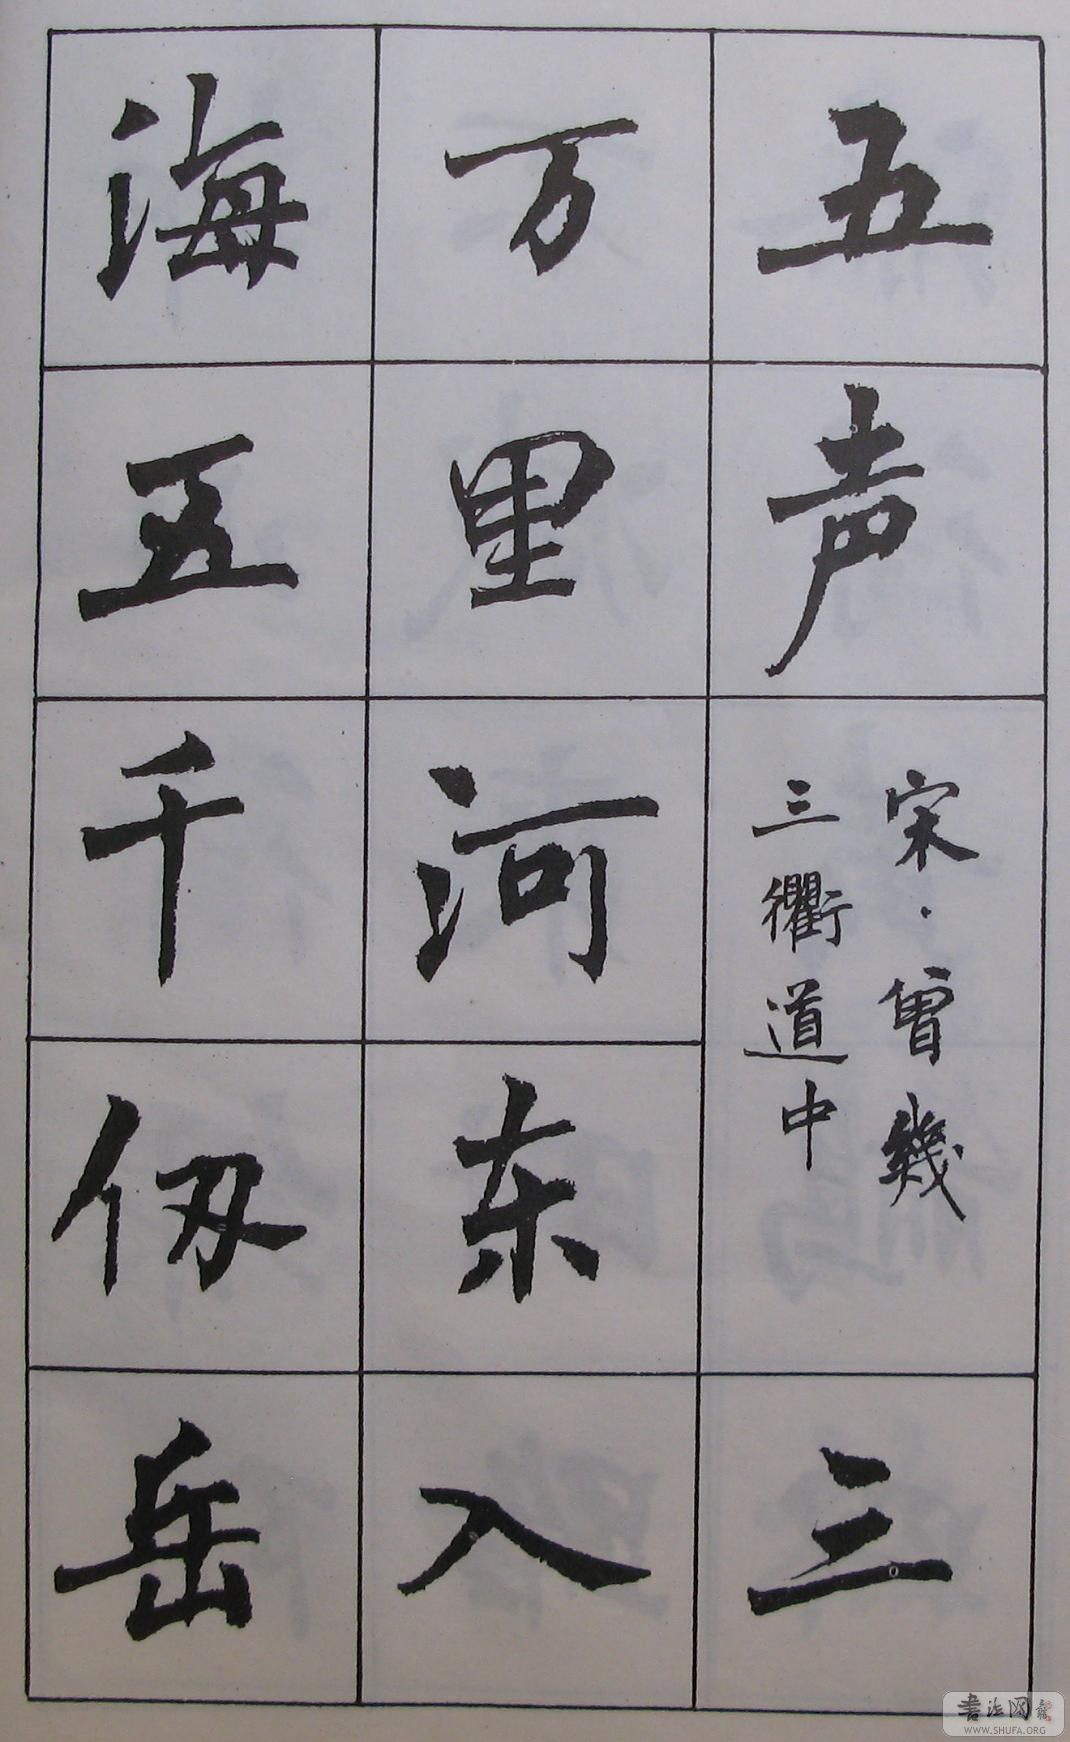 五声
宋·曾幾
三衢道中
三
万里河东入
海五千仞岳
书法网
WWW.SHUFA.ORG